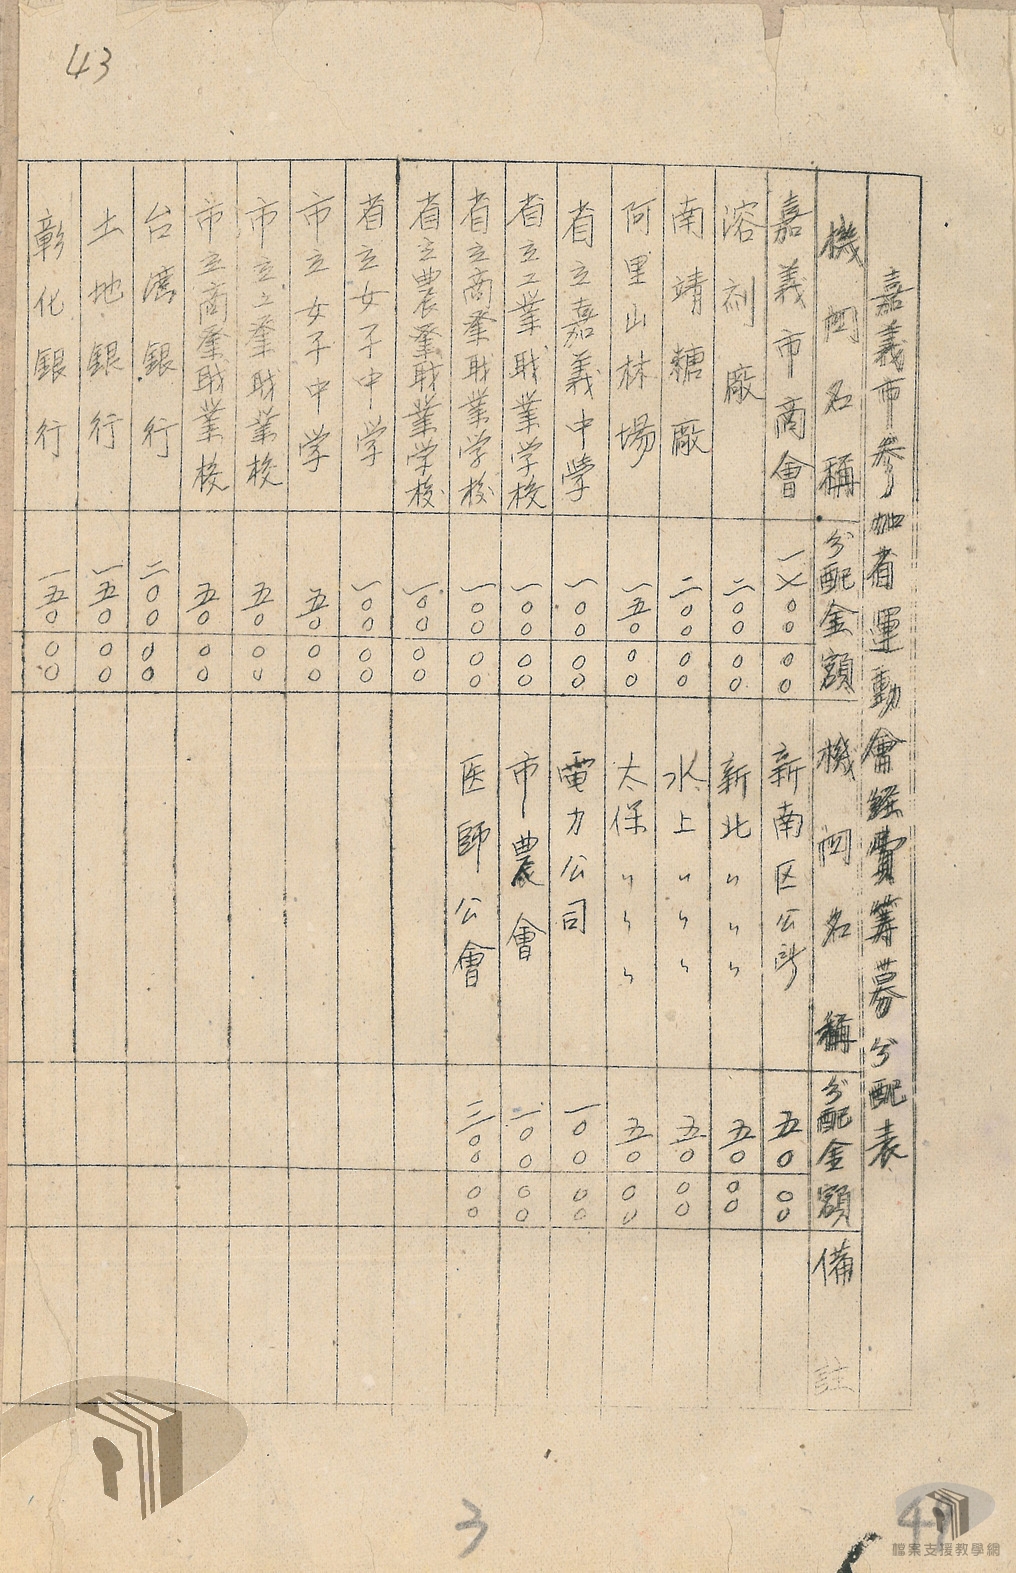 43
嘉義市參加省運動會經費籌募分配表
機関名稱 分配金額 機関名稱 分配金額 備註
嘉義市商會 一〇〇 〇〇 新南区公所 五〇 〇〇
溶剂廠 二〇〇 〇〇 新北〃〃〃 五〇 〇〇
南靖糖廠 二〇〇 〇〇 水上〃〃〃 五〇 〇〇
阿里山林場 一五〇 〇〇 太保〃〃〃 五〇 〇〇
省立嘉義中學 一〇〇 〇〇 電力公司 一〇〇 〇〇
省立工業職業学校 一〇〇 〇〇 市農會 一〇〇 〇〇
省立商業職業学校 一〇〇 〇〇 医師公會 〇〇 〇〇
省立農業職業学校 一〇〇 〇〇
省立女子中学 一〇〇 〇〇
市立女子中学 五〇 〇〇
市立工業職業校 五〇 〇〇
市立商業職業校 五〇 〇〇
台湾銀行 二〇〇 〇〇
土地銀行 一五〇 〇〇
彰化銀行 一五〇 〇〇
3
檔案支援教學網